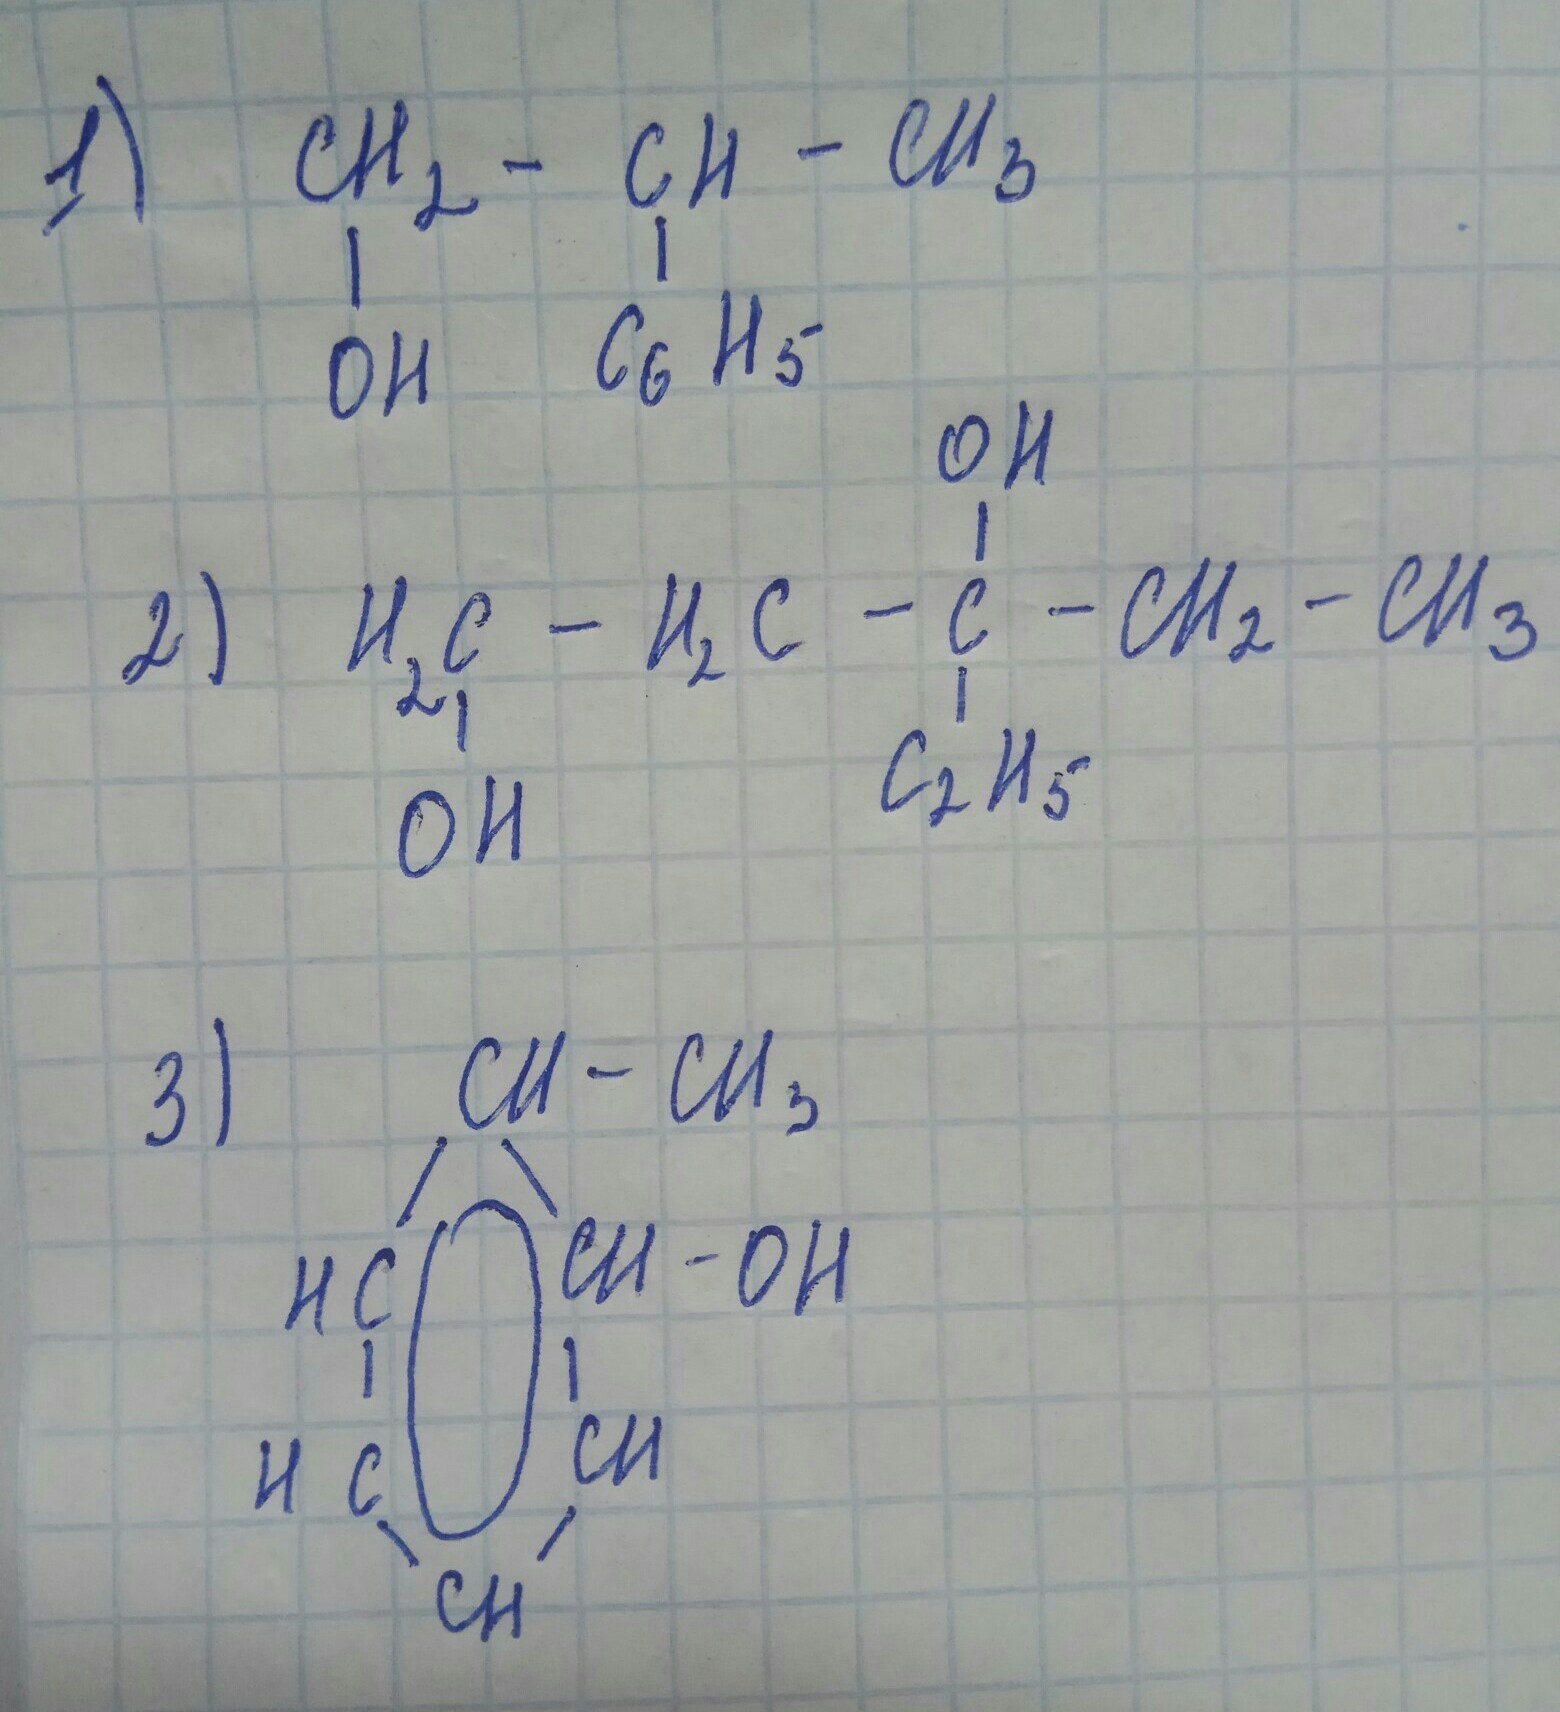 1) CH2 - CH - CH3
OH C6H5
OH
2) H2C - H2C - C - CH2 - CH3
OH C2H5
3) CH - CH3
HC CH - OH
HC CH
CH